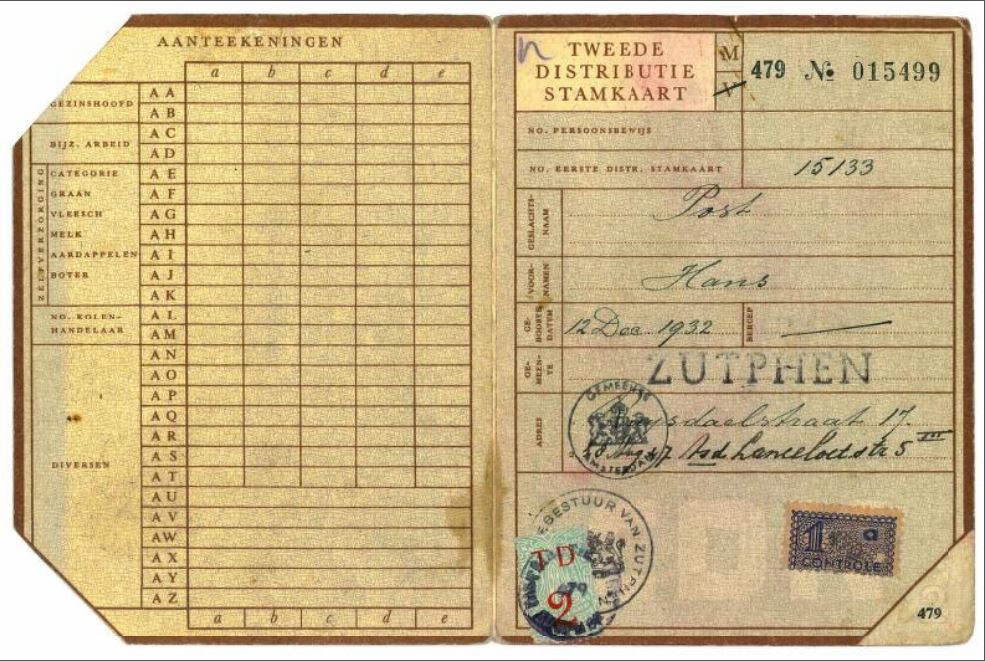 AANTEEKENINGEN
a b c d e
GEZINSHOOFD
AA
AB
BIJZ. ARBEID
AC
AD
ZELFVERZORGING
CATEGORIE AE
GRAAN AF
VLEESCH AG
MELK AH
AARDAPPELEN AI
BOTER AJ
AK
NO. KOLEN-
HANDELAAR
AL
AM
DIVERSEN
AN
AO
AP
AQ
AR
AS
AT
AU
AV
AW
AX
AY
AZ
a b c d e
n
TWEEDE
DISTRIBUTIE
STAMKAART
M
V
479 No 015499
NO. PERSOONSBEWIJS
NO. EERSTE DISTR. STAMKAART 15133
GESLACHTS-
NAAM
Post
VOOR-
NAMEN
Hans
GE-
BOORTE
DATUM
12 Dec. 1932
BEROEP
GE-
MEEN-
TE
ZUTPHEN
ADRES
GEMEENTE
AMSTERDAM
Ruysdaelstraat 17.
Asd Lanceloetstr 5 III
BESTUUR VAN ZUTPHEN
TD
479
2
1 a
CONTROLE
479